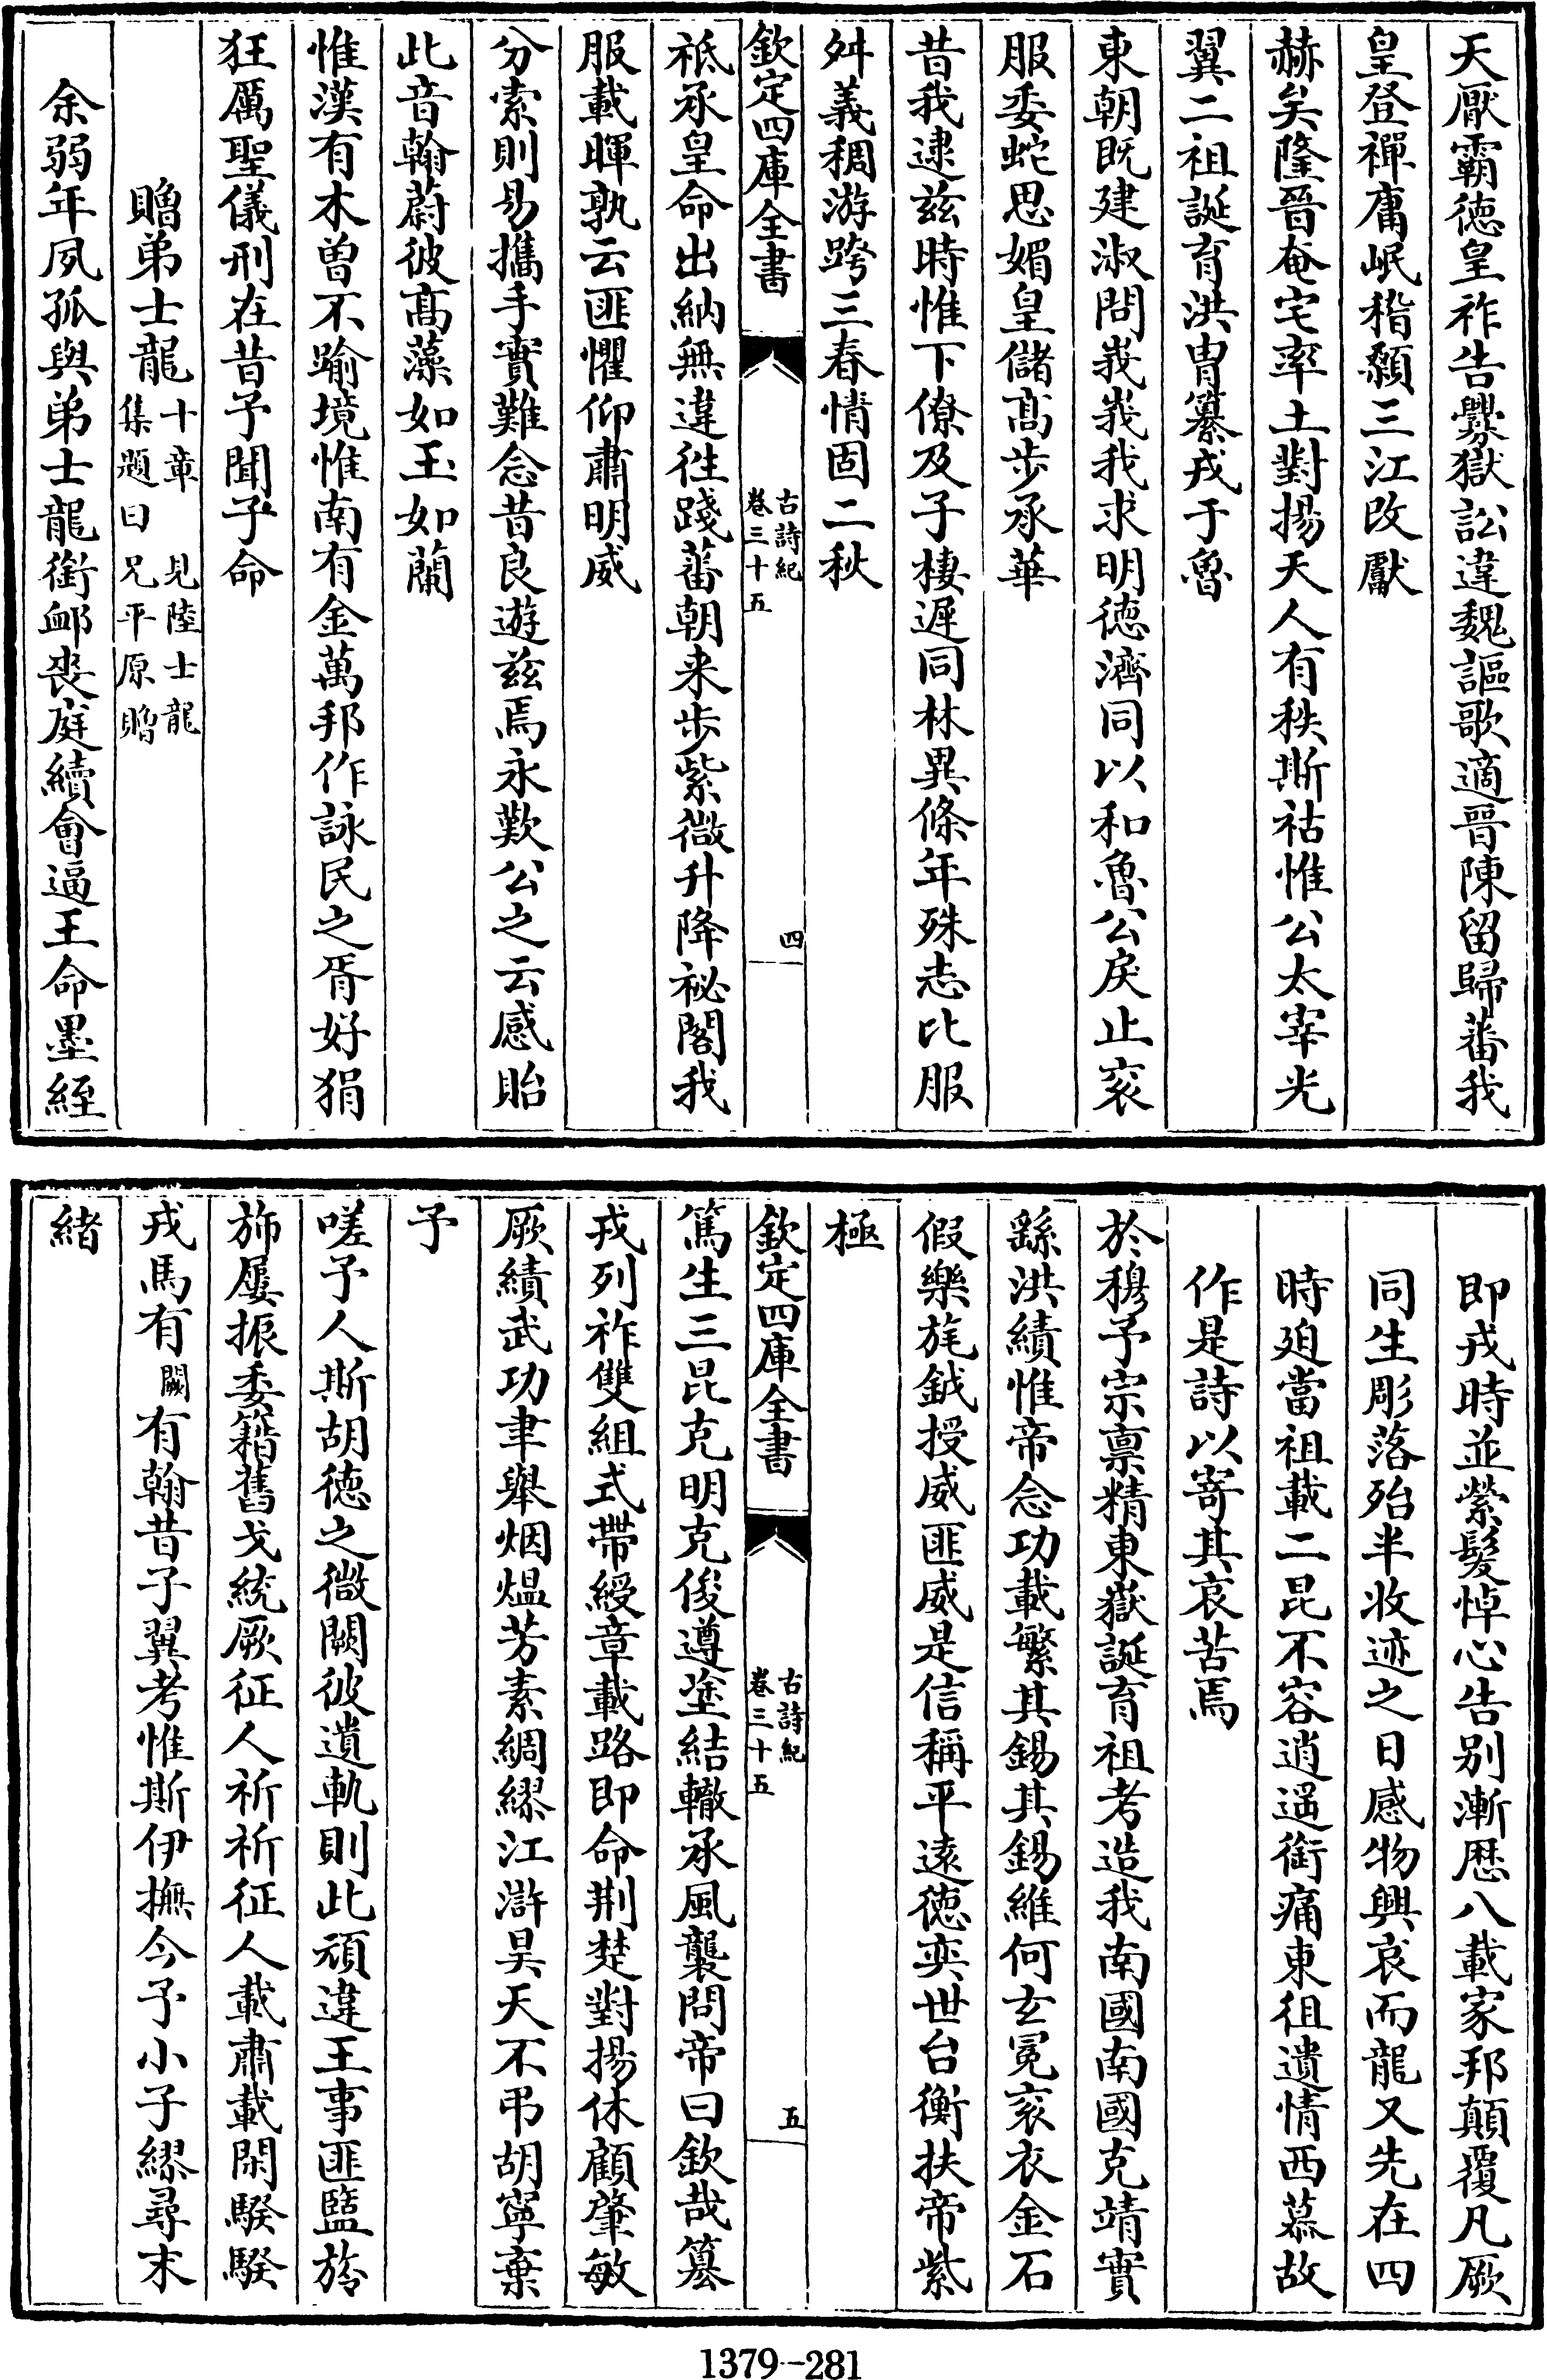 天厭霸德皇祚告釁獄訟違魏謳歌適晉陳留歸蕃我
皇登禪庸岷稽顙三江改獻
赫矣隆晉奄宅率土對揚天人有秩斯祜惟公太宰光
翼二祖誕育洪胄纂戎于魯
東朝既建淑問峩峩我求明徳濟同以和魯公戾止衮
服委蛇思媚皇儲髙步承華
昔我逮兹時惟下僚及子棲遲同林異條年殊志比服
舛義稠游跨三春情固二秋
欽定四庫全書
古詩紀
卷三十五
四
祗承皇命出納無違徃踐蕃朝来步紫微升降祕閣我
服載暉孰云匪懼仰肅明威
分索則易攜手實難念昔良遊兹焉永歎公之云感貽
此音翰蔚彼髙藻如玉如蘭
惟漢有木曽不踰境惟南有金萬邦作詠民之胥好狷
狂厲聖儀刑在昔予聞子命
贈弟士龍十章 見陸士龍
集題曰兄平原贈
余弱年夙孤與弟士龍銜衈喪庭續會逼王命墨絰
即戎時並縈髮悼心告别漸歴八載家邦顛覆凡厥
同生彫落殆半收迹之日感物興哀而龍又先在四
時廹當祖載二昆不容逍遥銜痛東徂遺情西慕故
作是詩以寄其哀苦焉
於穆予宗禀精東嶽誕育祖考造我南國南國克靖實
繇洪績惟帝念功載繁其錫其錫維何玄冕衮衣金石
假樂旄鉞授威匪威是信稱平逺徳奕世台衡扶帝紫
極
欽定四庫全書
古詩紀
卷三十五
五
篤生三昆克明克俊遵塗結轍承風襲問帝曰欽哉纂
戎列祚雙組式帶綬章載路即命荆楚對揚休顧肇敏
厥績武功聿舉烟煴芳素綢繆江滸昊天不弔胡寧棄
予
嗟予人斯胡徳之微闕彼遺軌則此頑違王事匪盬旍
斾屢振委籍舊戈統厥征人祈祈征人載肅載閑騤騤
戎馬有闕有翰昔予翼考惟斯伊撫今予小子繆尋末
緒
1379-281